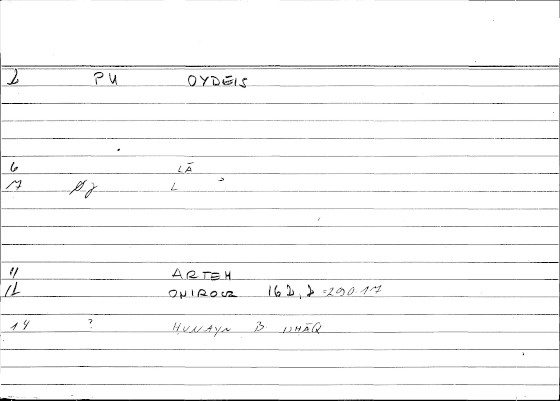 2 PU OYDEIS
6 LĀ
7 L
11 ARTEM
12 ONIROCR 162,2 =290.17
14 ? ḤUNAYN B ISḤĀQ